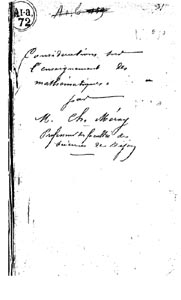 A1-a
72
Considérations sur
l'enseignement des
mathématiques.
par
M. Ch. Méray
Professeur à la faculté des
sciences de Dijon